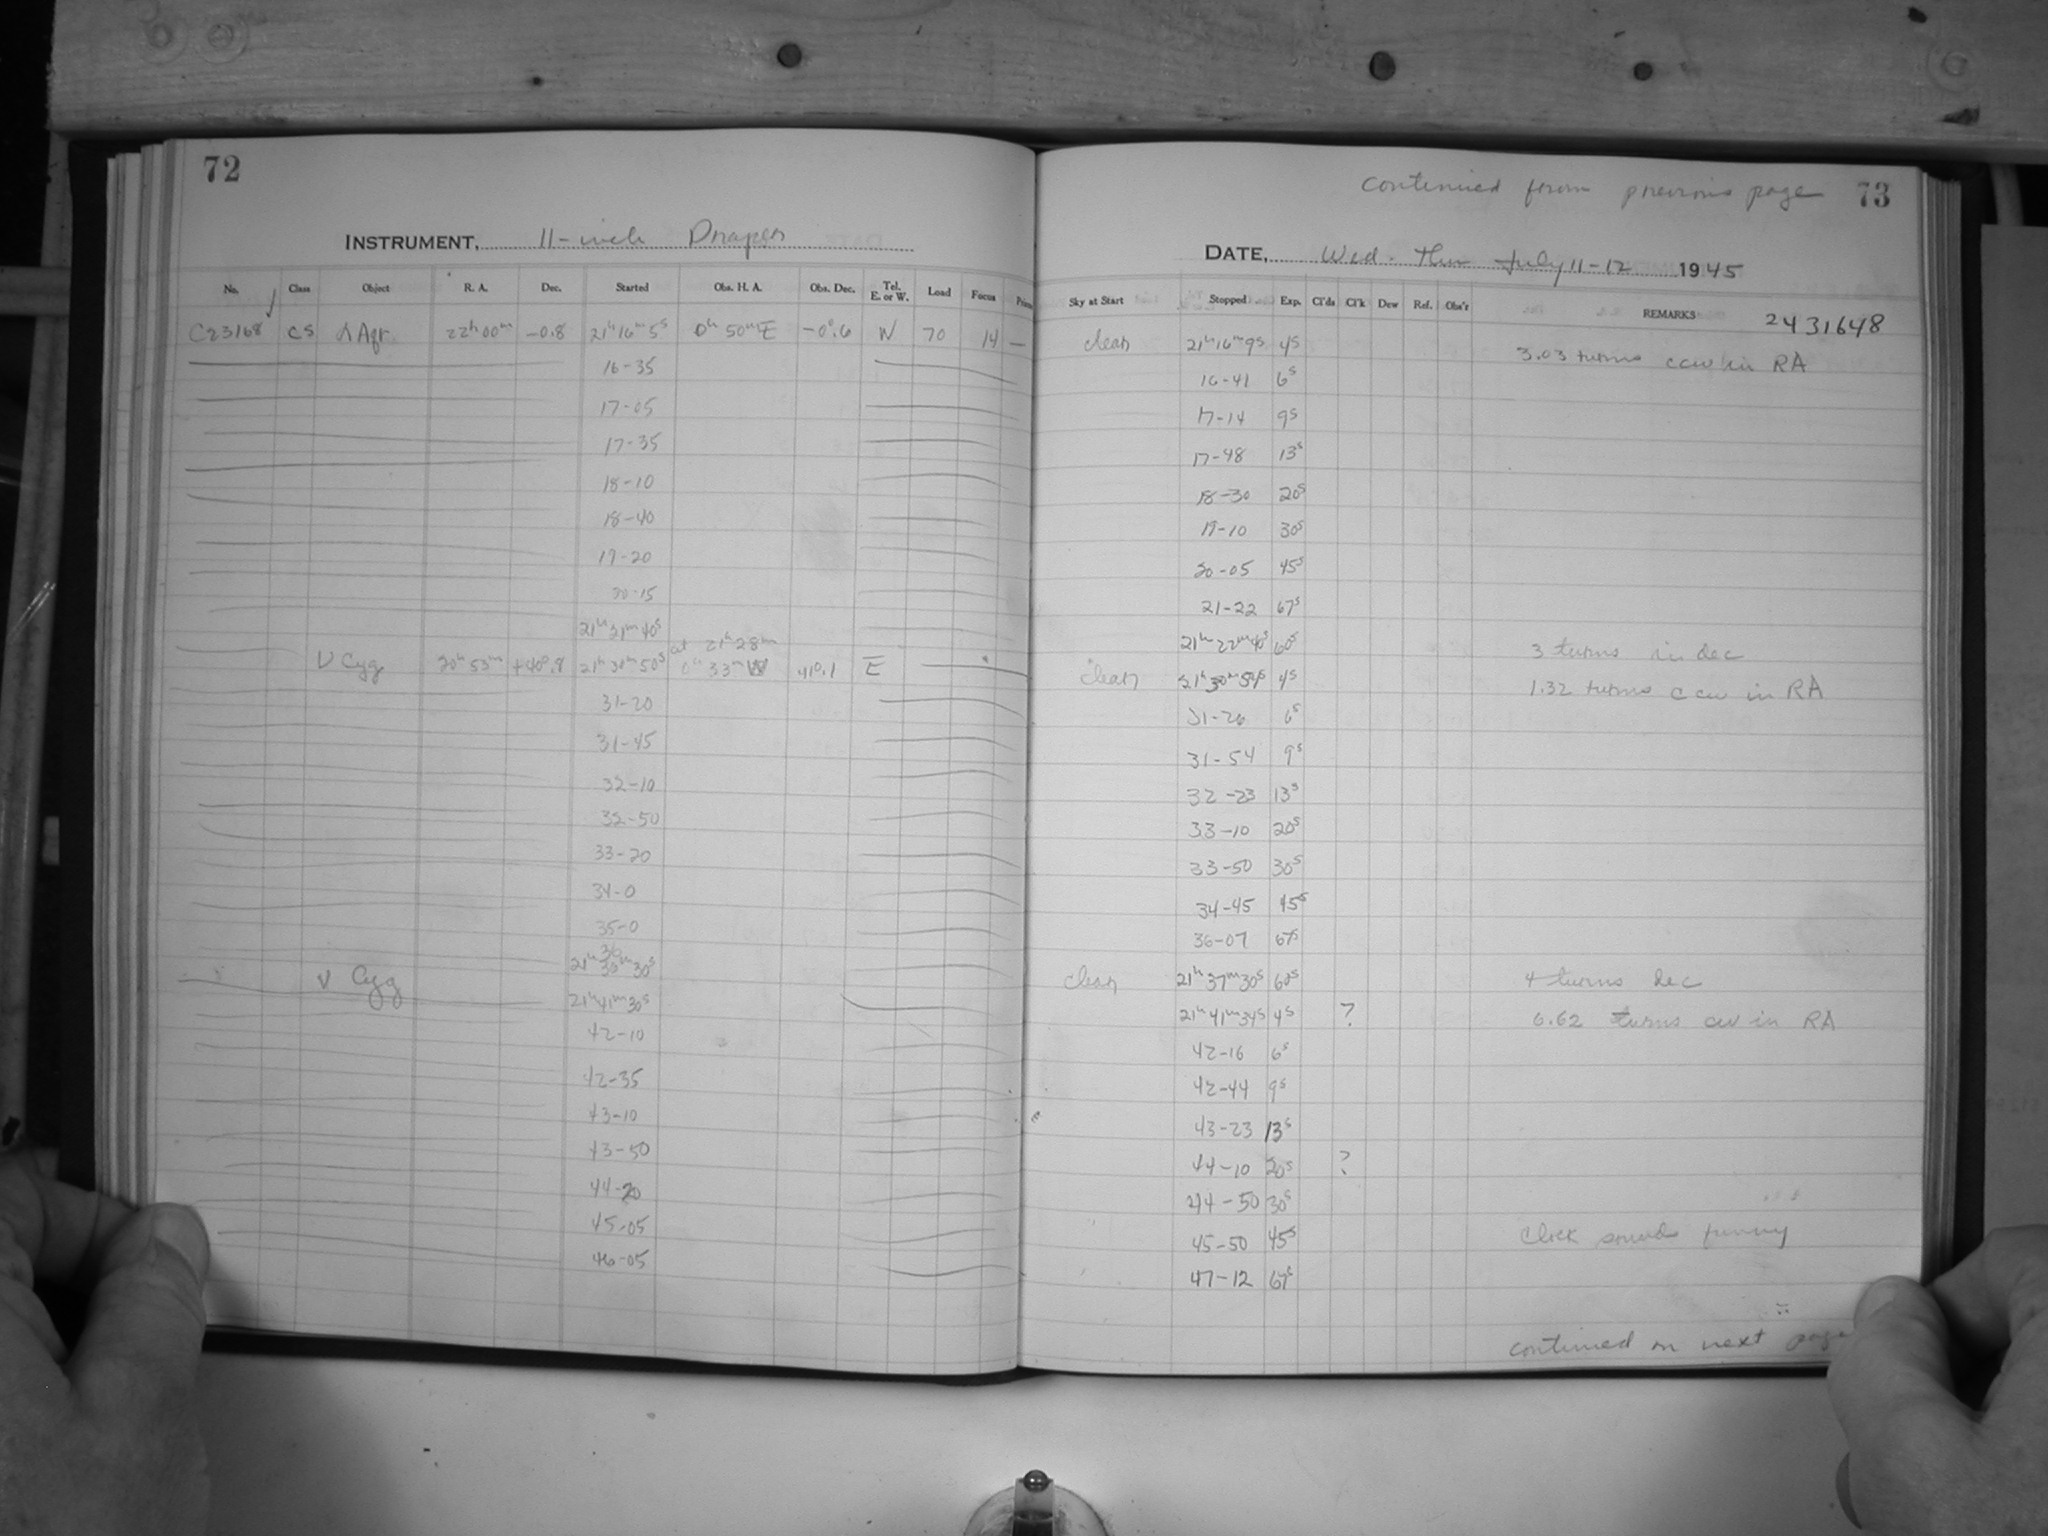 72
INSTRUMENT, 11-inch Draper
No. Class Object R. A. Dec. Started Obs. H. A. Obs. Dec. Tel. E. or W. Load Focus
C23168 CS α Aqr. 22h 00m -0.8 21h 16m 5s 0h 50m E -0°.6 W 70 14 —
16-35
17-05
17-35
18-10
18-40
19-20
20-15
21h 21m 40s
at 21h 28m
ν Cyg 20h 53m +40°.8 21h 30m 50s 0h 33m W 41°.1 E
31-20
31-45
32-10
32-50
33-20
34-0
35-0
21h 36m 30s
ν Cyg
21h 41m 30s
42-10
42-35
43-10
43-50
44-20
45-05
46-05
continued from previous page 73
DATE, Wed. - Thur July 11-12 1945
Sky at Start Stopped Exp. Cl'ds Cl'k Dew Ref. Obs'r REMARKS 2431648
clear 21h 16m 9s 4s 3.03 turns ccw in RA
16-41 6s
17-14 9s
17-48 13s
18-30 20s
19-10 30s
20-05 45s
21-22 67s
21h 22m 40s 60s 3 turns in dec
clear 21h 30m 54s 4s 1.32 turns ccw in RA
31-26 6s
31-54 9s
32-23 13s
33-10 20s
33-50 30s
34-45 45s
36-07 67s
clear 21h 37m 30s 60s 4 turns dec
21h 41m 34s 4s ? 6.62 turns cw in RA
42-16 6s
42-44 9s
43-23 13s
44-10 20s ?
44-50 30s
45-50 45s Clock sounds funny
47-12 67s
continued on next page